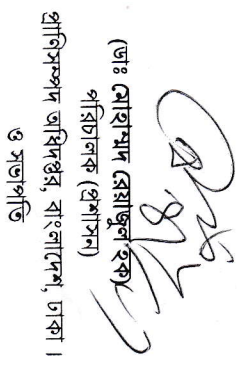 (ডাঃ মোহাম্মদ রেয়াজুল হক)
পরিচালক (প্রশাসন)
প্রাণিসম্পদ অধিদপ্তর, বাংলাদেশ, ঢাকা ।
ও সভাপতি